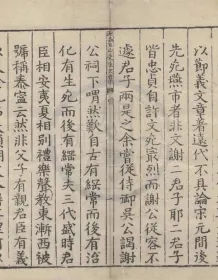 以節義文章著遠代不具論宋元間後
先死燕市者非文謝二君子耶二君子
皆忠貞自許文死最烈而謝公從容不
遽君子兩是之余嘗從侍御吳公謁謝
公祠下喟然歎自古有綱常而後有治
化有生死而後有綱常夫三代盛時君
臣相安夷夏相別禮樂聲教東漸西被
號稱泰寧云然非父子有親君臣有義